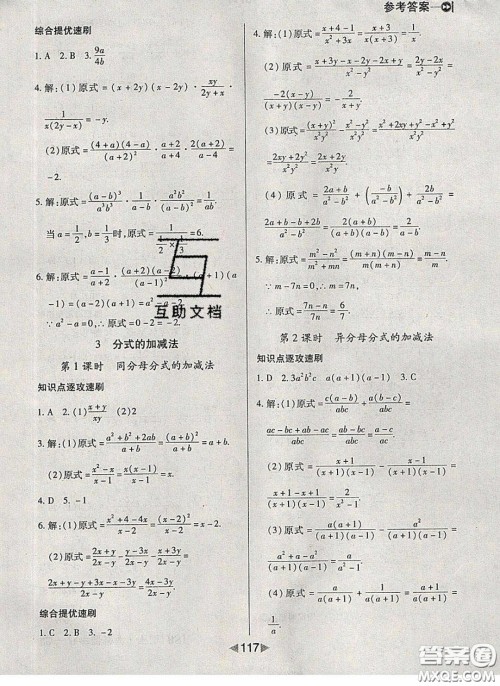 参考答案
综合提优速刷
1. A  2. B  3. 9a/4b
4. 解：(1)原式=(x+2y)(x-2y)·xy/(x+2y)·
1/(x(2y-x))=-y.
(2)原式=(4+a)(4-a)/(a+2)²·(a+2)/(a+4)·2(a+2)/(a-4)=
-2.
5. 解：原式=(a-b)³/(a³b³)·1/(a-b)·a²b²/(a-b)=1/(ab).
当a=1/2,b=1/3时,原式=1/(1/2×1/3)=6.
6. 解：原式=(a-1)/(a+2)·(a+2)(a-2)
+1)(a
-1)=(a-2)(a
∵a²-a=0,∴
互助文档
3 分式的加减法
第1课时 同分母分式的加减法
知识点逐攻速刷
1. A  2. (1)(x+y)/(xy)  (2)2
3. 解：(1)原式=(a²+b²+2ab)/(a+b)=(a+b)²/(a+b)=a+b.
(2)原式=(x²-x)/(x-1)=x(x-1)/(x-1)=x.
4. D  5. -1
6. 解：(1)原式=(x²+4-4x)/(x-2)=(x-2)²/(x-2)=x-2.
(2)原式=(2x+y)/(2x-y)-(y-2x)/(2x-y)-(x+3y)/(2x-y)=
(2x+y-y+2x-x-3y)/(2x-y)=(3x-3y)/(2x-y).
综合提优速刷
1. C  2. B  3. -2
4. 解：(1)原式=(x+4-1)/(x+3)=(x+3)/(x+3)=1.
(2)原式=(x+3y-x-2y-2x+3y)/(x²-y²)=
-2(x-y)/((x+y)(x-y))=-2/(x+y).
(3)原式=(x+y)²/(x²y²)-(x²-y²)/(x²y²)=(x²+2xy+y²-x²+y²)/(x²y²)
=(2xy+2y²)/(x²y²)=(2x+2y)/(x²y).
(4)原式=(2a+b)/(a²-b²)+(-b)/(a²-b²)+(2b)/(a²-b²)=
(2a+b-b+2b)/(a²-b²)=2(a+b)/((a+b)(a-b))=2/(a-b).
5. 解：原式=(m²-n²)/(m²+mn)=(m+n)(m-n)/(m(m+n))=(m-n)/m.
∵m-7n=0,∴原式=(7n-n)/(7n)=6/7.
第2课时 异分母分式的加减法
知识点逐攻速刷
1. D  2. 3a²b²c  3. C
4. 解：(1)原式=c(a-b)/(abc)+a(b-c)/(abc)=
(ac-bc+ab-ac)/(abc)=(ab-bc)/(abc)=(a-c)/(ac).
(2)原式=(x+1)/((x+1)(x-1))-(x-1)/((x+1)(x-1))=
(x+1-x+1)/((x+1)(x-1))=2/(x²-1).
(3)原式=a(a+1)/((a+1)(a-1))-(a-1)/((a+1)(a-1))=
(a²+1)/(a²-1).
(4)原式=1/(a(a+1))+a/(a(a+1))=(a+1)/(a(a+1))=
1/a.
117
答案圈
MXQE.COM